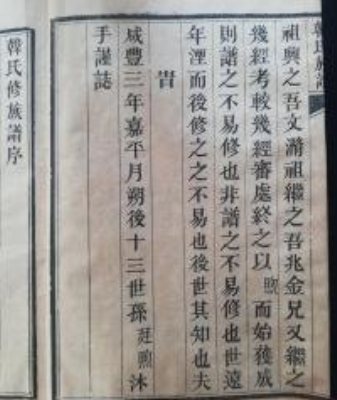 韓氏族譜
祖興之吾文瀞祖繼之吾兆金兄又繼之
幾經考較幾經審處終之以煦而始獲成
則譜之不易修也非譜之不易修也世遠
年湮而後修之之不易也後世其知也夫
旹
咸豐三年嘉平月朔後十三世孫廷煦沐
手謹誌
韓氏修族譜序